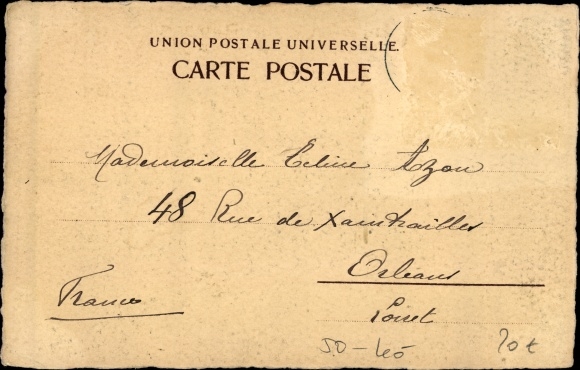 UNION POSTALE UNIVERSELLE.
CARTE POSTALE
Mademoiselle Céline Azon
48 Rue de Xaintrailles
Orléans
France
Loiret
50-